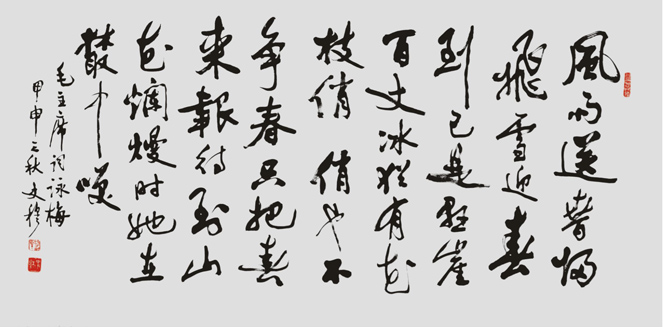 風雨送春歸
飛雪迎春
到已是懸崖
百丈冰猶有花
枝俏俏也不
争春只把春
来報待到山
花爛熳时她在
叢中笑
毛主席词詠梅
甲申之秋文